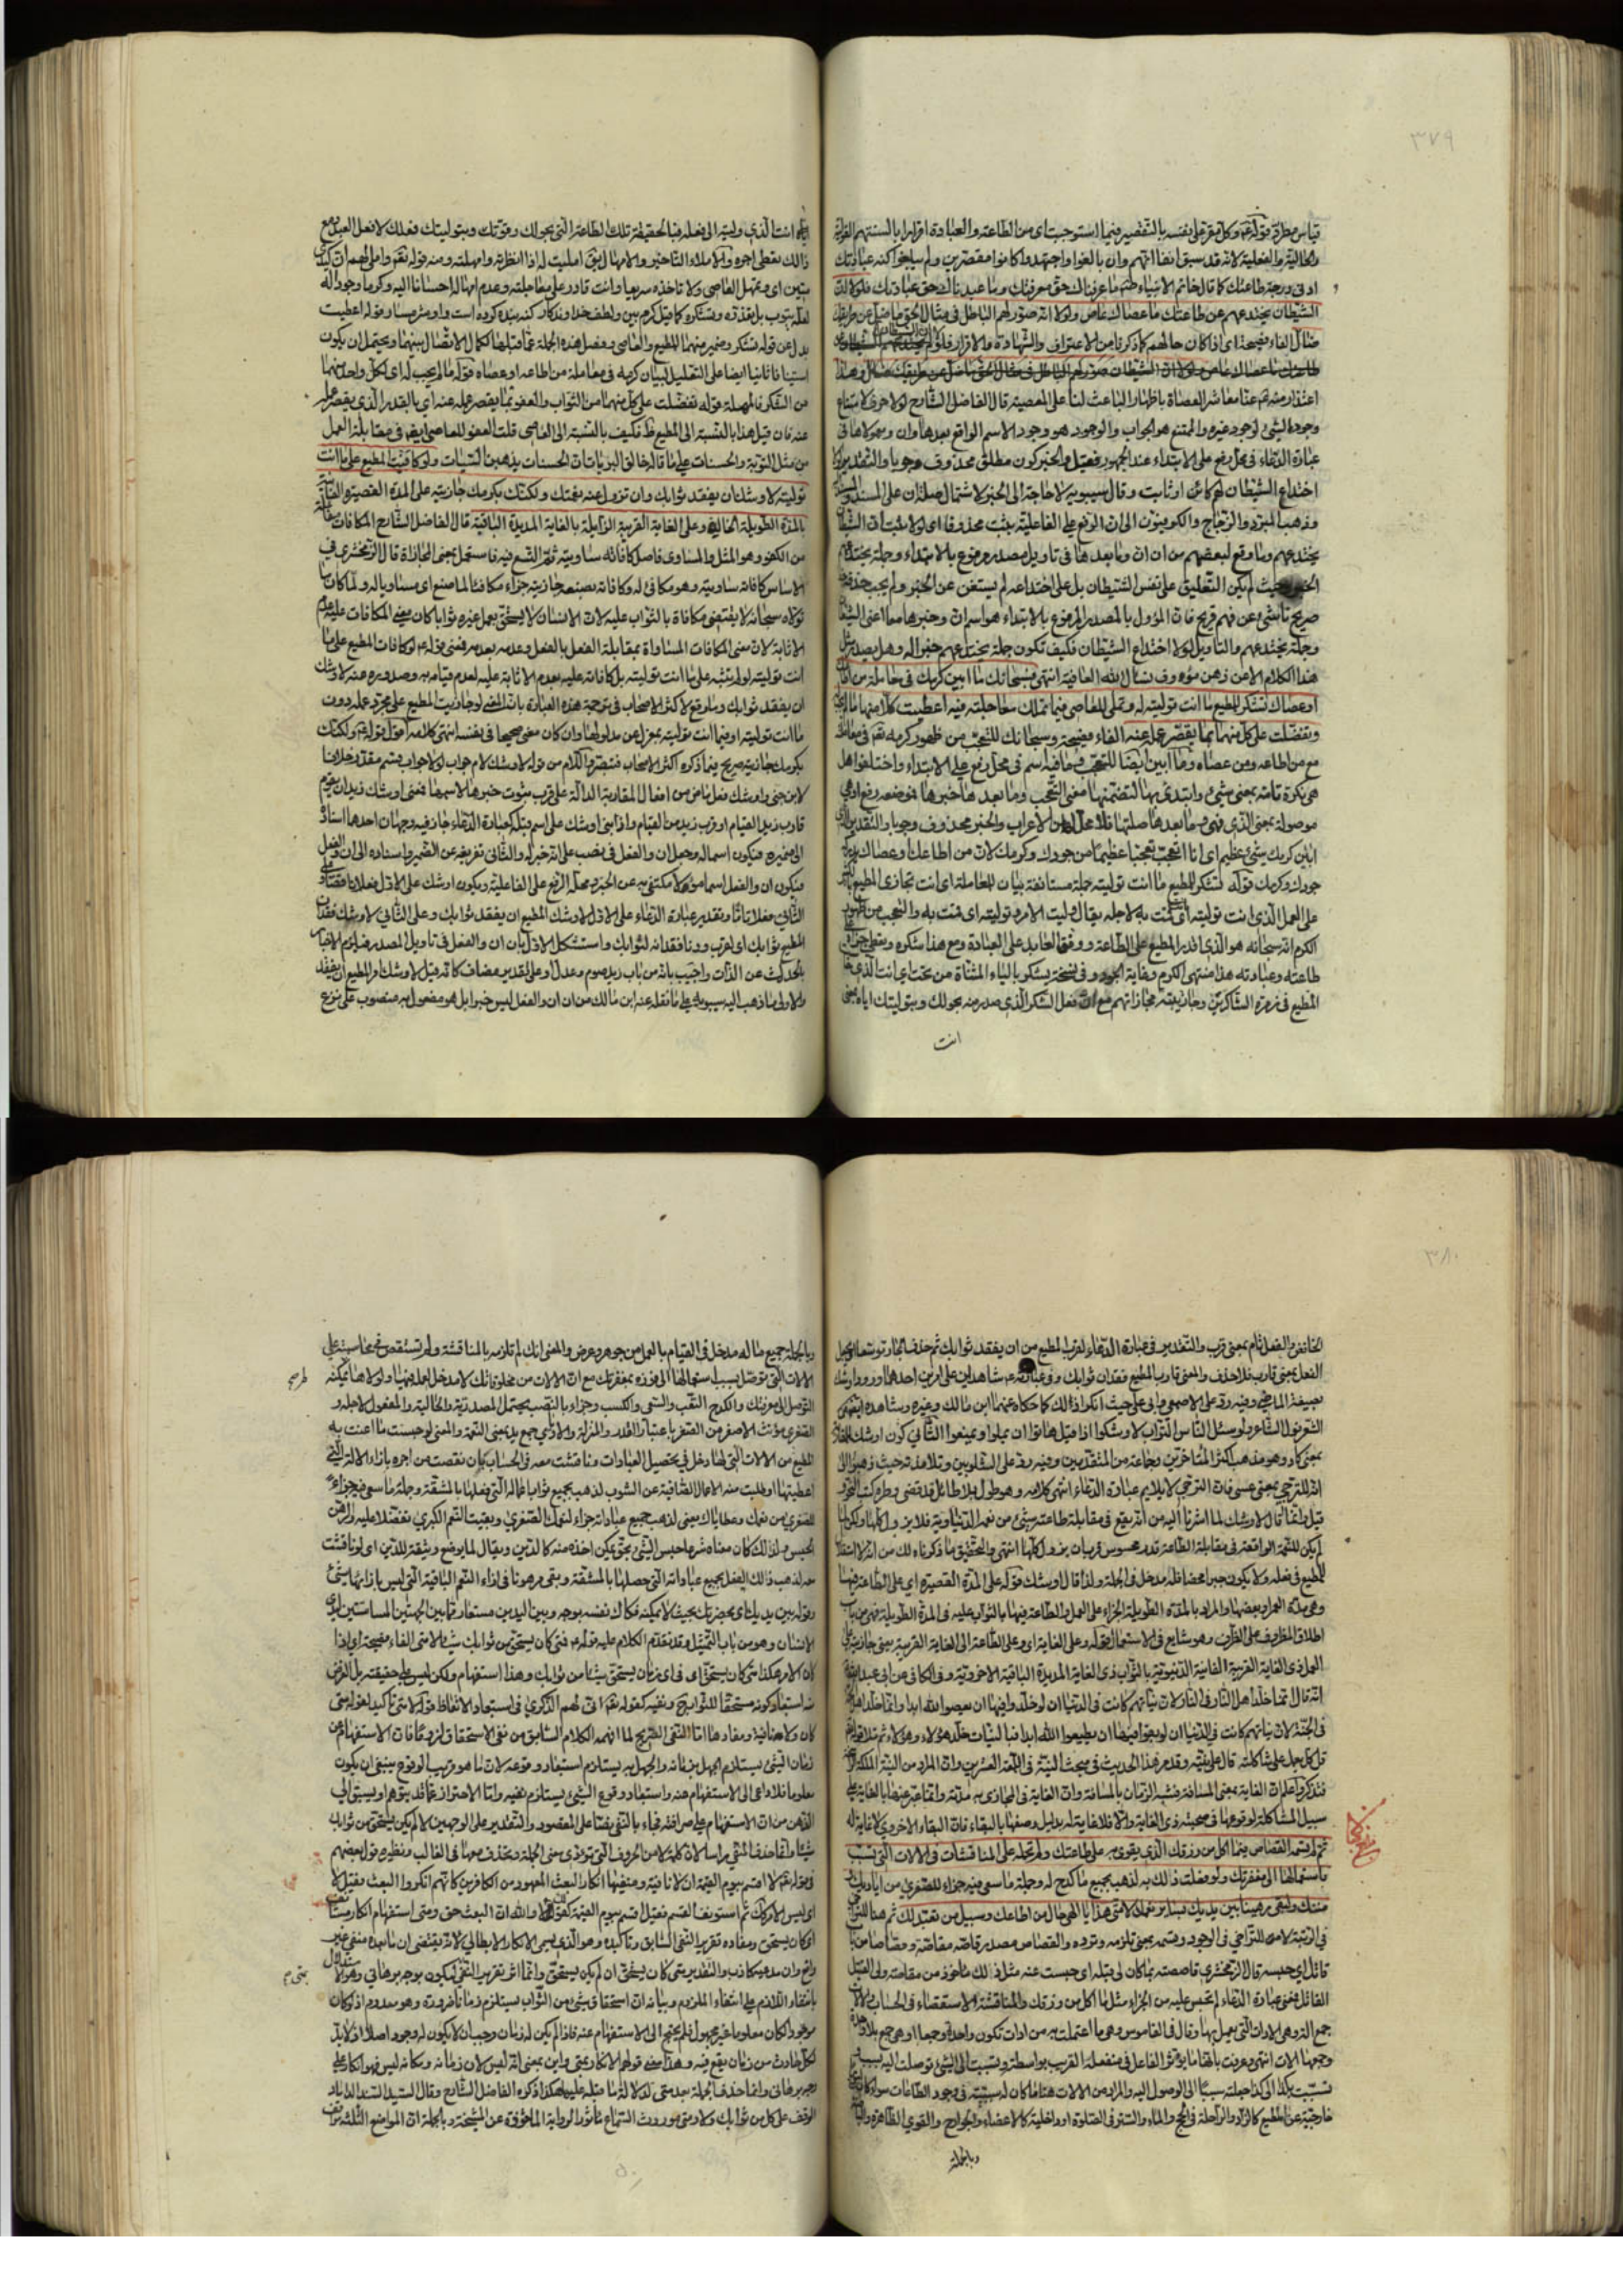 ٣٧٩
قياس مطرد قوله وكل مقر على نفسه بالتقصير فيما استوجبت اى من الطاعة والعبادة اقرارا بالسنتهم القولية
والحالية والفعلية لانه قد سبق انفا انهم وان بالغوا واجتهدوا كانوا مقصرين ولم يبلغوا كنه عبادتك
ادنى درجة طاعتك كما قال خاتم الانبياء ما عرفناك حق معرفتك وما عبدناك حق عبادتك فلولا ان
الشيطان يختدعهم عن طاعتك ما عصاك عاص ولولا انه صور لهم الباطل فى مثال الحق ما ضل عن طريقك
ضال الفاء فصيحة اى اذا كان حالهم كما ذكرنا من الاعتراف والشهادة والاقرار فلولا ان الشيطان
اعتذار منه عنا معاشر العصاة باظهار الباعث لنا على المعصية قال الفاضل الشارح لولا حرف لامتناع
وجود الشئ لوجود غيره والممتنع هو الجواب والوجود هو وجود الاسم الواقع بعدها وان ومعمولاها فى
عبارة الدعاء فى محل رفع على الابتداء عند الجمهور فقيل والخبر كون مطلق محذوف وجوبا والتقدير لولا
اختداع الشيطان لهم كائن او ثابت وقال سيبويه لا حاجة الى الخبر لاشتمال صلة ان على المسند والمسند
وذهب المبرد والزجاج والكوفيون الى ان الرفع على الفاعلية بثبت محذوفا اى لولا ثبت ان الشيطان
يختدعهم وما وقع لبعضهم من ان ان وما بعدها فى تاويل مصدر مرفوع بالابتداء وجملة يختدعهم
الخبر حيث لم يكن التعليق على نفس الشيطان بل على اختداعه لم يستغن عن الخبر ولم يجب حذفه
صريح ناشئ عن فهم قريح فان المؤول بالمصدر المرفوع بالابتداء هو اسم ان وخبرها معا اعنى الشيطان
وجملة يختدعهم والتاويل لولا اختداع الشيطان فكيف تكون جملة يختدعهم خبرا له وهل يصدر مثل
هذا الكلام الا عن ذهن مؤوف نسال الله العافية انتهى فسبحانك ما ابين كرمك فى معاملة من اطاعك
او عصاك تشكر للمطيع ما انت توليته له وتملى للعاصى فيما تملك معاجلته فيه اعطيت كلا منهما ما لم يجب
وتفضلت على كل منهما بما يقصر عمله عنه الفاء فصيحة وسبحانك للتعجب من ظهور كرمه تعالى فى معاملته
مع من اطاعه ومن عصاه وما ابين ايضا للتعجب فما فيه اسم فى محل رفع على الابتداء واختلفوا هل
هى نكرة تامة بمعنى شئ وابتدئ بها لتضمنها معنى التعجب وما بعدها خبرها فموضعه رفع او هى
موصولة بمعنى الذى فهى وما بعدها صلتها فلا محل له من الاعراب والخبر محذوف وجوبا والتقدير الذى
ابان كرمك شئ عظيم اى انا اتعجب تعجبا عظيما من جودك وكرمك لان من اطاعك او عصاك
جودك وكرمك قوله تشكر للمطيع ما انت توليته جملة مستانفة بيان للمعاملة اى انت تجازى المطيع
على العمل الذى انت توليته اى قمت به لاجله يقال وليت الامر وتوليته اى قمت به والتعجب من ظهور
الكرم انه سبحانه هو الذى اقدر المطيع على الطاعة ووفق العابد على العبادة ومع هذا شكره ويعطى جزاء
طاعته وعبادته هذا منتهى الكرم وغاية الجود وفى نسخة يشكر بالياء المثناة من تحت اى انت الذى
المطيع فى زمرة الشاكرين وجازيته مجازاتهم مع ان فعل الشكر الذى صدر منه بحولك وبتوليتك اياه
انت
انت الذى وليته الى فعله فبالحقيقة تلك الطاعة التى بحولك وقوتك وبتوليتك فعلك لا فعل العبد ومع
ذلك تعطى اجره والاملاء التاخير والامهال يق امليت له اذا انظرته وامهلته ومنه قوله تعالى واملى لهم ان كيدى
متين اى وتمهل العاصى ولا تاخذه سريعا وانت قادر على معاجلته وعدم امهاله احسانا اليه وكرما وجودا له
لعله يتوب كما قيل كرم بين ولطف خداوندگار گنه بنده كرده است واو شرمسار وقوله اعطيت
بدل عن قوله تشكر وضمير منهما للمطيع والعاصى وفصل هذه الجملة عما قبلها لكمال الاتصال بينهما ويحتمل ان يكون
استينافا ثانيا ايضا على التعليل لبيان كرمه فى معاملة من اطاعه او عصاه قوله ما لم يجب له اى لكل واحد منهما
من الشكر والمهلة قوله تفضلت على كل منهما من الثواب والعفو بما يقصر عمله عنه اى بالقدر الذى يقصر عمله
عنه فان قيل هذا بالنسبة الى المطيع ظ فكيف بالنسبة الى العاصى قلت العفو للعاصى ايضا فى مقابلة العمل
من مثل التوبة والحسنات على ما قاله خالق البريات ان الحسنات يذهبن السيئات ولو كافيت المطيع على ما انت
توليته لاوشك ان يفقد ثوابك وان تزول عنه نعمتك ولكنك بكرمك جازيته على المدة القصيرة الفانية
بالمدة الطويلة الخالدة وعلى الغاية القريبة الزايلة بالغاية المديدة الباقية قال الفاضل الشارح المكافات
من الكفو وهو المثل والمساوى فاصل كافاته ساويته ثم اتسع فيه فاستعمل بمعنى المجازاة قال الزمخشرى فى
الاساس كافاته ساويته وهو مكافئ له وكافاته بصنعه جازيته جزاء مكافئا لما صنع اى مساويا له ولما كان
تولاه سبحانه لا يقتضى مكافاة بالثواب عليه لان الانسان لا يستحق بعمل غيره ثوابا كان معنى المكافات عليه عدم
الاثابة لان معنى المكافات المساواة بمقابلة الفعل بالفعل وعدمه بعدمه فمعنى قوله لو كافات المطيع على ما
انت توليته لو لم يثبه على ما انت توليته بل كافاته عليه بعدم الاثابة عليه لعدم قيامه به وصدوره عنه لاوشك
ان يفقد ثوابك وما وقع لاكثر الاصحاب فى ترجمة هذه العبارة بان المعنى لو جازيت المطيع على مجرد عمله دون
ما انت توليته او فيما انت توليته بمعزل عن مدلولها وان كان معنى صحيحا فى نفسه انتهى كلامه اقول قوله ولكنك
بكرمك جازيته صريح فيما ذكره اكثر الاصحاب فتبصر واللام من قوله لاوشك لام جواب لولا جواب قسم مقدر خلافا
لابن جنى واوشك فعل ناقص من افعال المقاربة الدالة على قرب ثبوت خبرها لاسمها فمعنى اوشك زيد ان يقوم
قارب زيد القيام او قرب زيد من القيام واذا بنى اوشك على اسم قبله كعبارة الدعاء جاز فيه وجهان احدها اسناده
الى ضميره فيكون اسما له وجعل ان والفعل فى نصب على انه خبر له والثانى تفريغه عن الضمير واسناده الى ان والفعل
فيكون ان والفعل اسما مؤولا مكتفى به عن الخبر ومحله الرفع على الفاعلية ويكون اوشك على الاول فعلا ناقصا وعلى
الثانى فعلا تاما وتقدير عبارة الدعاء على الاول لاوشك المطيع ان يفقد ثوابك وعلى الثانى لاوشك فقدان
المطيع ثوابك اى لقرب ودنا فقدانه لثوابك واستشكل الاول بان ان والفعل فى تاويل المصدر فيلزم الاخبار
بالحدث عن الذات واجيب بانه من باب زيد صوم وعدل او على تقدير مضاف كانه قيل لاوشك امر المطيع ان يفقد
والاولى ما ذهب اليه سيبويه على ما نقله عنه ابن مالك من ان ان والفعل ليس خبرا بل هو مفعول به منصوب على نزع
٣٨٠
الخافض والفعل تام بمعنى قرب والتقدير فى عبارة الدعاء لقرب المطيع من ان يفقد ثوابك ثم حذف الجار توسعا
الفعل بمعنى قارب فلا حذف والمعنى قارب المطيع فقدان ثوابك وفى عبارته شاهدان على امرين احدهما ورود اوشك
بصيغة الماضى وفيه رد على الاصمعى وابى على حيث انكرا ذلك كما حكاه عنهما ابن مالك وغيره وشاهده ايضا من
الشعر قول الشاعر ولو سئل الناس التراب لاوشكوا اذا قيل هاتوا ان يملوا ويمنعوا الثانى كون اوشك للمقاربة
بمعنى كاد وهو مذهب اكثر المتاخرين وجماعة من المتقدمين وفيه رد على الشلوبين وتلامذته حيث ذهبوا الى
انه للترجى بمعنى عسى فان الترجى لا يلايم عبارة الدعاء انتهى كلامه وهو طول بلا طائل
قيل انما قال لاوشك لما اشرنا اليه من انه يقع فى مقابلة طاعته شئ من نعمه الدنياوية فلا يزول كلها ولكن لما
لم يكن للنعمة الواقعة فى مقابلة الطاعة قدر محسوس قربان يزول كلها انتهى والتحقيق ما ذكرناه لك من انه لا استقلال
للمطيع فى فعله ولا يكون جبرا محضا فله مدخل فى الجملة ولذا قال اوشك قوله على المدة القصيرة اى على الطاعة فيها
وهى مدة العمر او بعضها والمراد بالمدة الطويلة الجزاء على العمل والطاعة فيها بالثواب عليه فى المدة الطويلة فهى من باب
اطلاق المظروف على الظرف وهو شايع فى الاستعمال قوله وعلى الغاية اى وعلى الطاعة الى الغاية القريبة يعنى جازيته على
العمل ذى الغاية القريبة الفانية الدنيوية بالثواب ذى الغاية المديدة الباقية الاخروية وفى الكافى عن ابى عبد الله
انه قال انما خلد اهل النار فى النار لان نياتهم كانت فى الدنيا ان لو خلدوا فيها ان يعصوا الله ابدا وانما خلد اهل الجنة
فى الجنة لان نياتهم كانت فى الدنيا ان لو بقوا فيها ان يطيعوا الله ابدا فبالنيات خلد هؤلاء وهؤلاء ثم تلا قوله
قل كل يعمل على شاكلته قال على نيته وقد مر هذا الحديث فى مبحث النية فى اللمعة العشرين وان المراد من النية الملكة
فتذكر واعلم ان الغاية بمعنى المسافة فشبه الزمان بالمسافة وان الغاية فى المجازى به مدته وانما عبر عنها بالغاية على
سبيل المشاكلة لوقوعها فى صحبة ذى الغاية والا فلا غاية له بدليل وصفها بالبقاء فان البقاء الاخروى لا غاية له
ثم لم تسمه القصاص فيما اكل من رزقك الذى يقوى به على طاعتك ولم تحمله على المناقشات فى الالات التى تسبب
باستعمالها الى مغفرتك ولو فعلت ذلك به لذهب بجميع ما كدح له وجملة ما سعى فيه جزاء للصغرى من اياديك
ومننك ولبقى رهينا بين يديك بسائر نعمك فمتى هذا يا الهى حال من اطاعك وسبيل من تعبد لك ثم هنا للتراخى
فى الرتبة لا للتراخى فى الوجود وتسمه بمعنى تلزمه وترده والقصاص مصدر قاصه مقاصة وقصاصا من باب
قاتل اى حبسه قال الزمخشرى قاصصته بما كان لى قبله اى حبست عنه مثل ذلك ماخوذ من مقاصة ولى القتيل
القاتل فمعنى عبارة الدعاء لم تحبس عليه من الجزاء مثل ما اكل من رزقك والمناقشة الاستقصاء فى الحساب والالات
جمع الة وهى الادات التى يعمل بها وقال فى القاموس وهى ما اعتملت به من ادات تكون واحدا وجمعا او هى جمع بلا واحد
وجمعها الات انتهى وعرفت بانها ما يؤثر الفاعل فى منفعله القريب بواسطته وتسببت الى الشئ توصلت اليه بسبب
تسببت بكذا الى كذا جعلته سببا الى الوصول اليه والمراد من الالات هنا ما كان له سببية فى وجود الطاعات سواء كانت
خارجية عن المطيع كالزاد والراحلة فى الحج والماء والستر فى الصلوة او داخلية كالاعضاء والجوارح والقوى الظاهرة والباطنة
وبالجملة
وبالجملة جميع ما له مدخل فى القيام بالعمل من جوهر وعرض والمعنى انك لم تلزمه بالمناقشة ولم تستقص فى محاسبته على
الالات التى توصل بسبب استعمالها الى فوزه بمغفرتك مع ان الالات من مخلوقاتك لا مدخل لعمله فيها ولولاها لم يمكنه
التوصل الى معرفتك والكدح التعب والسعى والكسب وجزاء بالنصب يحتمل المصدرية والحالية والمفعول لاجله و
الصغرى مؤنث الاصغر من الصغر باعتبار القدر والمنزلة والايدى جمع يد بمعنى النعمة والمعنى لو حسبت ما اعنت به
المطيع من الالات التى لها دخل فى تحصيل العبادات وناقشت معه فى الحساب بان نقصت من اجره بازاء الالة التى
اعطيتها او طلبت منه الاعمال الصافية عن الشوب لذهب بجميع ثواب اعماله التى فعلها بالمشقة وجملة ما سعى فيه جزاء
للصغرى من نعمك وعطاياك يعنى لذهب جميع عباداته جزاء لنعمك الصغرى وبقيت النعم الكبرى تفضلا عليه والرهن
الحبس ولذلك كان معناه شرعا حبس الشئ بحق يمكن اخذه منه كالدين ويقال لما يوضع وثيقة للدين اى لو ناقشت
معه لذهب ذلك الفعل بجميع عباداته التى حصلها بالمشقة وبقى مرهونا فى ازاء النعم الباقية التى ليس بازائها شئ
وقوله بين يديك اى بحضرتك بحيث لا يمكنه فكاك نفسه بوجه وبين اليدين مستعار مما بين الجهتين المسامتتين ليدى
الانسان وهو من باب التمثيل وقد تقدم الكلام عليه قوله فمتى كان يستحق من ثوابك شيئا لا متى الفاء فصيحة اى اذا
كان الامر هكذا متى كان يستحق اى فى اى زمان يستحق شيئا من ثوابك وهذا استفهام ولكن ليس على حقيقته بل الغرض
منه استبعاد كونه مستحقا للثواب ونفيه كقوله تعالى انى لهم الذكرى فى استبعاد الاتعاظ قوله لا متى تاكيد لقوله متى
كان ولا هنا نافية ومفادها اما النفى الصريح لما افهمه الكلام السابق من نفى الاستحقاق لزوما فان الاستفهام عن
زمان الشئ يستلزم الجهل بزمانه والجهل به يستلزم استبعاد وقوعه لان ما هو قريب الوقوع ينبغى ان يكون
معلوما فلا داعى الى الاستفهام عنه واستبعاد وقوع الشئ يستلزم نفيه واما الاحتراز عما قد يتوهم ويسبق الى
الذهن من ان الاستفهام على صرافته فجاء بالنفى نصا على المقصود والتقدير على الوجهين لا لم يكن يستحق من ثوابك
شيئا وانما حذف المنفى راسا لان كلمة لا من الحروف التى تؤدى معنى الجملة ويحذف معها فى الغالب ونظيره قول بعضهم
وقوله لا اقسم بيوم القيمة ان لا نافية ومنفيها انكار البعث المعهود من الكافرين كانهم انكروا البعث فقيل لا
اى ليس الامر كذلك ثم استونف القسم فقيل اقسم بيوم القيمة كقولك لا والله ان البعث حق ومتى استفهام انكار
اى كان يستحق ومفاده تقرير النفى السابق وتاكيده وهو الذى يسمى الانكار الابطالى لانه يقتضى ان ما بعده منفى غير
واقع وان مدعيه كاذب والتقدير متى كان يستحق ان لم يكن يستحق وانما اثر تقرير النفى ليكون بوجه برهانى وهو
بانتفاء اللازم على انتفاء الملزوم وبيانه ان استحقاق شئ من الثواب يستلزم زمانا ضرورة وهو معدوم اذ لو كان
موجودا لكان معلوما غير مجهول فلم يحتج الى الاستفهام عنه فاذا لم يكن له زمان وجب ان لا يكون له وجود اصلا اذ لا بد
لكل حادث من زمان يقع فيه وهذا معنى قولهم الانكار بمتى واين بمعنى انه ليس لان زمانه ومكانه ليس فهو انكار على
وجه برهانى وانما حذف الجملة بعد متى لدلالة ما قبله عليها هكذا ذكره الفاضل الشارح وقال السيد السند الداماد
الوقف على كل من ثوابك ولا ومتى موروث السماع ماثور الرواية الماخوذة عن المشيخة وبالجملة ان المواضع الثلثة